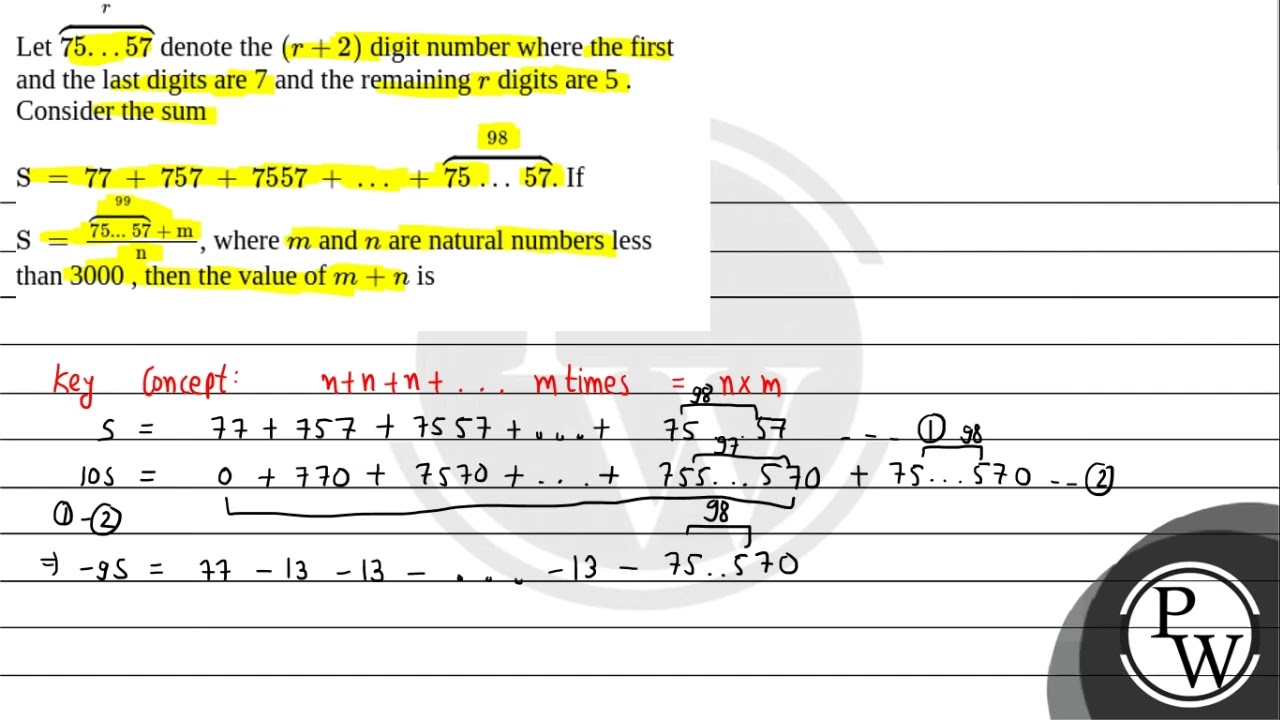 r
Let 75...57 denote the (r + 2) digit number where the first
and the last digits are 7 and the remaining r digits are 5 .
Consider the sum
98
S = 77 + 757 + 7557 + ... + 75 ... 57. If
99
S = 75... 57 + m / n , where m and n are natural numbers less
than 3000 , then the value of m + n is
Key Concept: n+n+n+ . . . m times = n x m
98
S = 77 + 757 + 7557 + . . . + 75 . . 57 - - - ①
97 98
10S = 0 + 770 + 7570 + . . . + 755...570 + 75...570 -- ②
① - ②
98
⇒ -9S = 77 - 13 - 13 - . . . - 13 - 75..570
P
W